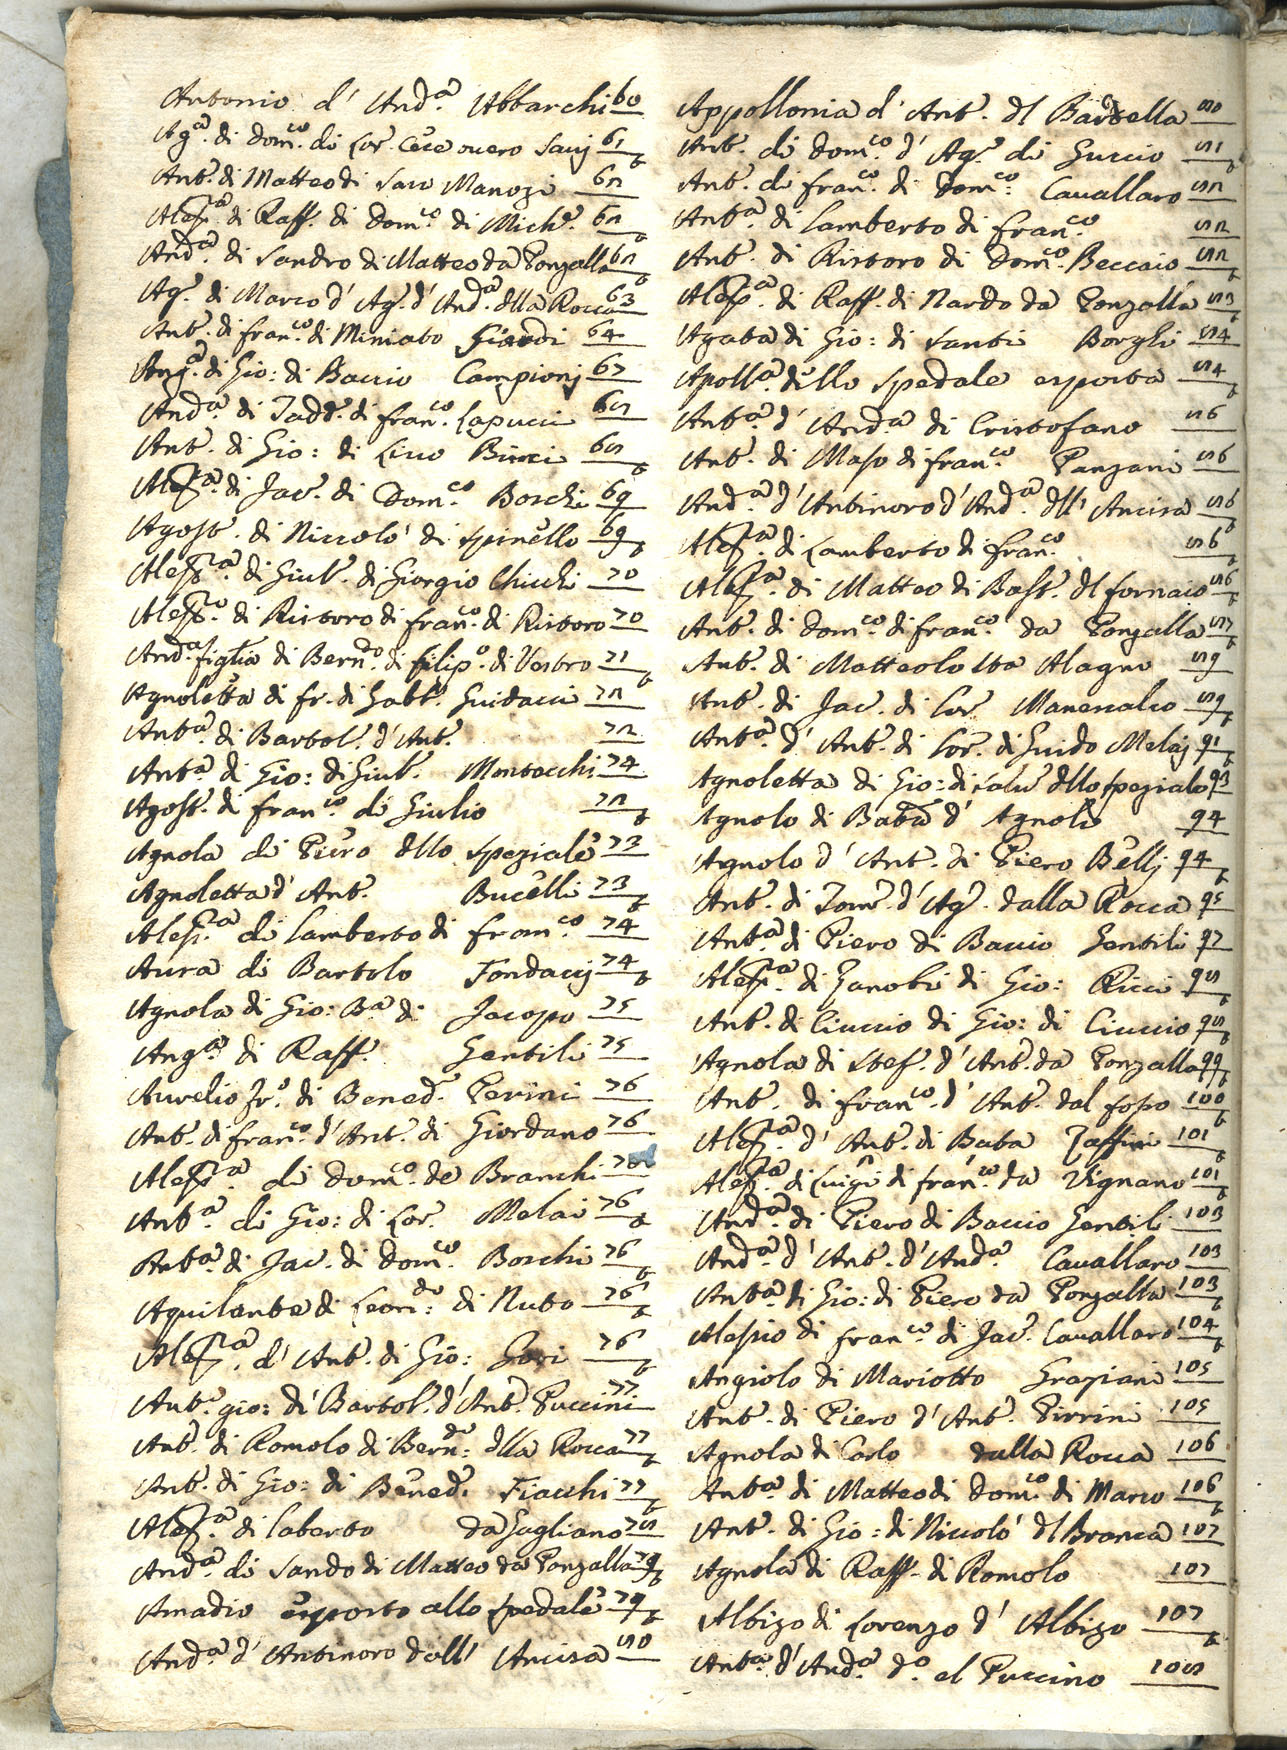 Antonio d' And.ª Abbarchi 60
Ag.ª di Dom.co di Lor. Cece overo Savi 61 t
Ant.o di Matteo di Saro Manozi 62
Aless.ª di Raff. di Dom.co di Mich.e 62 t
And.ª di Sandro di Matteo da Ponzalla 62 t
Ag.o di Marco d' Ag.o d' And.ª dlla Rocca 63
Ant.o di Fran.co di Miniato Giardi 64
Ang.ª di Gio: di Baccio Campionj 67
And.ª di Tadd.o di Fran.co Lapucci 68
Ant.o di Gio: di Lino Binci 68 t
Aless.ª di Jac.o di Dom.co Boschi 69
Agost.o di Niccolò di Spinello 69 t
Aless.ª di Giul.o di Giorgio Chichi 70
Aless.o di Ristoro di Fran.co di Ristoro 70
And.ª figlia di Bern.do di Filip.o di Vostro 71 t
Agnoletta di Fr. di Gabb.o Guidacci 72
Ant.ª di Bartol.o d' Ant.o 72
Ant.ª di Gio: di Giul.o Montacchi 74
Agost.o di Fran.co di Giulio 72 t
Agnola di Piero dllo Speziale 73
Agnoletta d' Ant.o Bucelli 73 t
Aless.ª di Lamberto di Fran.co 74
Aura di Bartolo Fondacij 74 t
Agnola di Gio: B.ª di Jacopo 75
Ang.ª di Raff. Gentili 75
Aurelio Fr.o di Bened.o Perini 76
Ant.o di Fran.co d' Ant.o di Giordano 76
Aless.ª di Dom.co de Branchi 76
Ant.ª di Gio: di Lor. Melai 76 t
Ant.ª di Jac.o di Dom.co Boschi 76 t
Aquilante di Leon.do: di Nuto 76 t
Aless.ª d' Ant.o di Gio: Gori 76 t
Ant.o gio: di Bartol.o d' Ant.o Puccini 77
Ant.o di Romolo di Bern.do: dlla Rocca 77 t
Ant.o di Gio: di Bened.o Fiacchi 77 t
Aless.ª di Laberto da Gagliano 78
And.ª di Sando di Matteo da Ponzalla 79 t
Amadio esposto allo Spedale 79 t
And.ª d' Antinoro dall' Ancisa 80
Appollonia d' Ant.o dl Bardella 80
Ant.o di Dom.co d' Ag.o di Guccio 81 t
Ant.o di Fran.co di Dom.co: Cavallaro 82
Ant.ª di Lamberto di Fran.co 82
Ant.o di Ristoro di Dom.co Beccaio 82 t
Aless.ª di Raff. di Nardo da Ponzalla 83 t
Agata di Gio: di Santi Borghi 84
Apoll.ª dello Spedale esposta 84 t
Ant.ª d' And.ª di Cristofano 86
Ant.o di Maso di Fran.co Panzani 86
And.ª d' Antinoro d' And.ª dll' Ancisa 86 t
Aless.ª di Lamberto di Fran.co 86 t
Aless.ª di Matteo di Bast.o dl fornaio 86 t
Ant.o di Dom.co di Fran.co da Ponzalla 87 t
Ant.o di Matteolo Alagno 89
Ant.o di Jac.o di Lor. Manescalco 89 t
Ant.ª d' Ant.o di Lor. di Guido Melaj 91 t
Agnoletta di Gio: di Salv.e dllo speziale 93
Agnolo di Bab.ª d' Agnolo 94
Agnolo d' Ant.o di Piero Bellj 94 t
Ant.o di Tom.o d' Ag.o dalla Rocca 95
Ant.ª di Piero di Baccio Gentili 97
Aless.ª di Zanobi di Gio: Ricci 98 t
Ant.o di Ciuccio di Gio: di Ciuccio 98 t
Agnola di Stef.o d' Ant.o da Ponzalla 99 t
Ant.o di Fran.co d' Ant.o dal fosso 100 t
Aless.ª d' Ant.o di Baba Zaffini 101 t
Aless.ª di Luigi di Fran.co da Vignano 101 t
And.ª di Piero di Baccio Gentili 103
And.ª d' Ant.o d' And.ª Cavallaro 103
Ant.ª di Gio: di Piero da Ponzalla 103 t
Alesso di Fran.co di Jac.o Cavallaro 104 t
Angiolo di Mariotto Graziani 105
Ant.o di Piero d' Ant.o Pirrini 105
Agnola di Carlo dalla Rocca 106
Ant.ª di Matteo di Dom.co di Marco 106 t
Ant.o di Gio: di Niccolò dl Branca 107
Agnola di Raff. di Romolo 107
Albizo di Lorenzo d' Albizo 107 t
Ant.ª d' And.ª d.o el Puccino 108